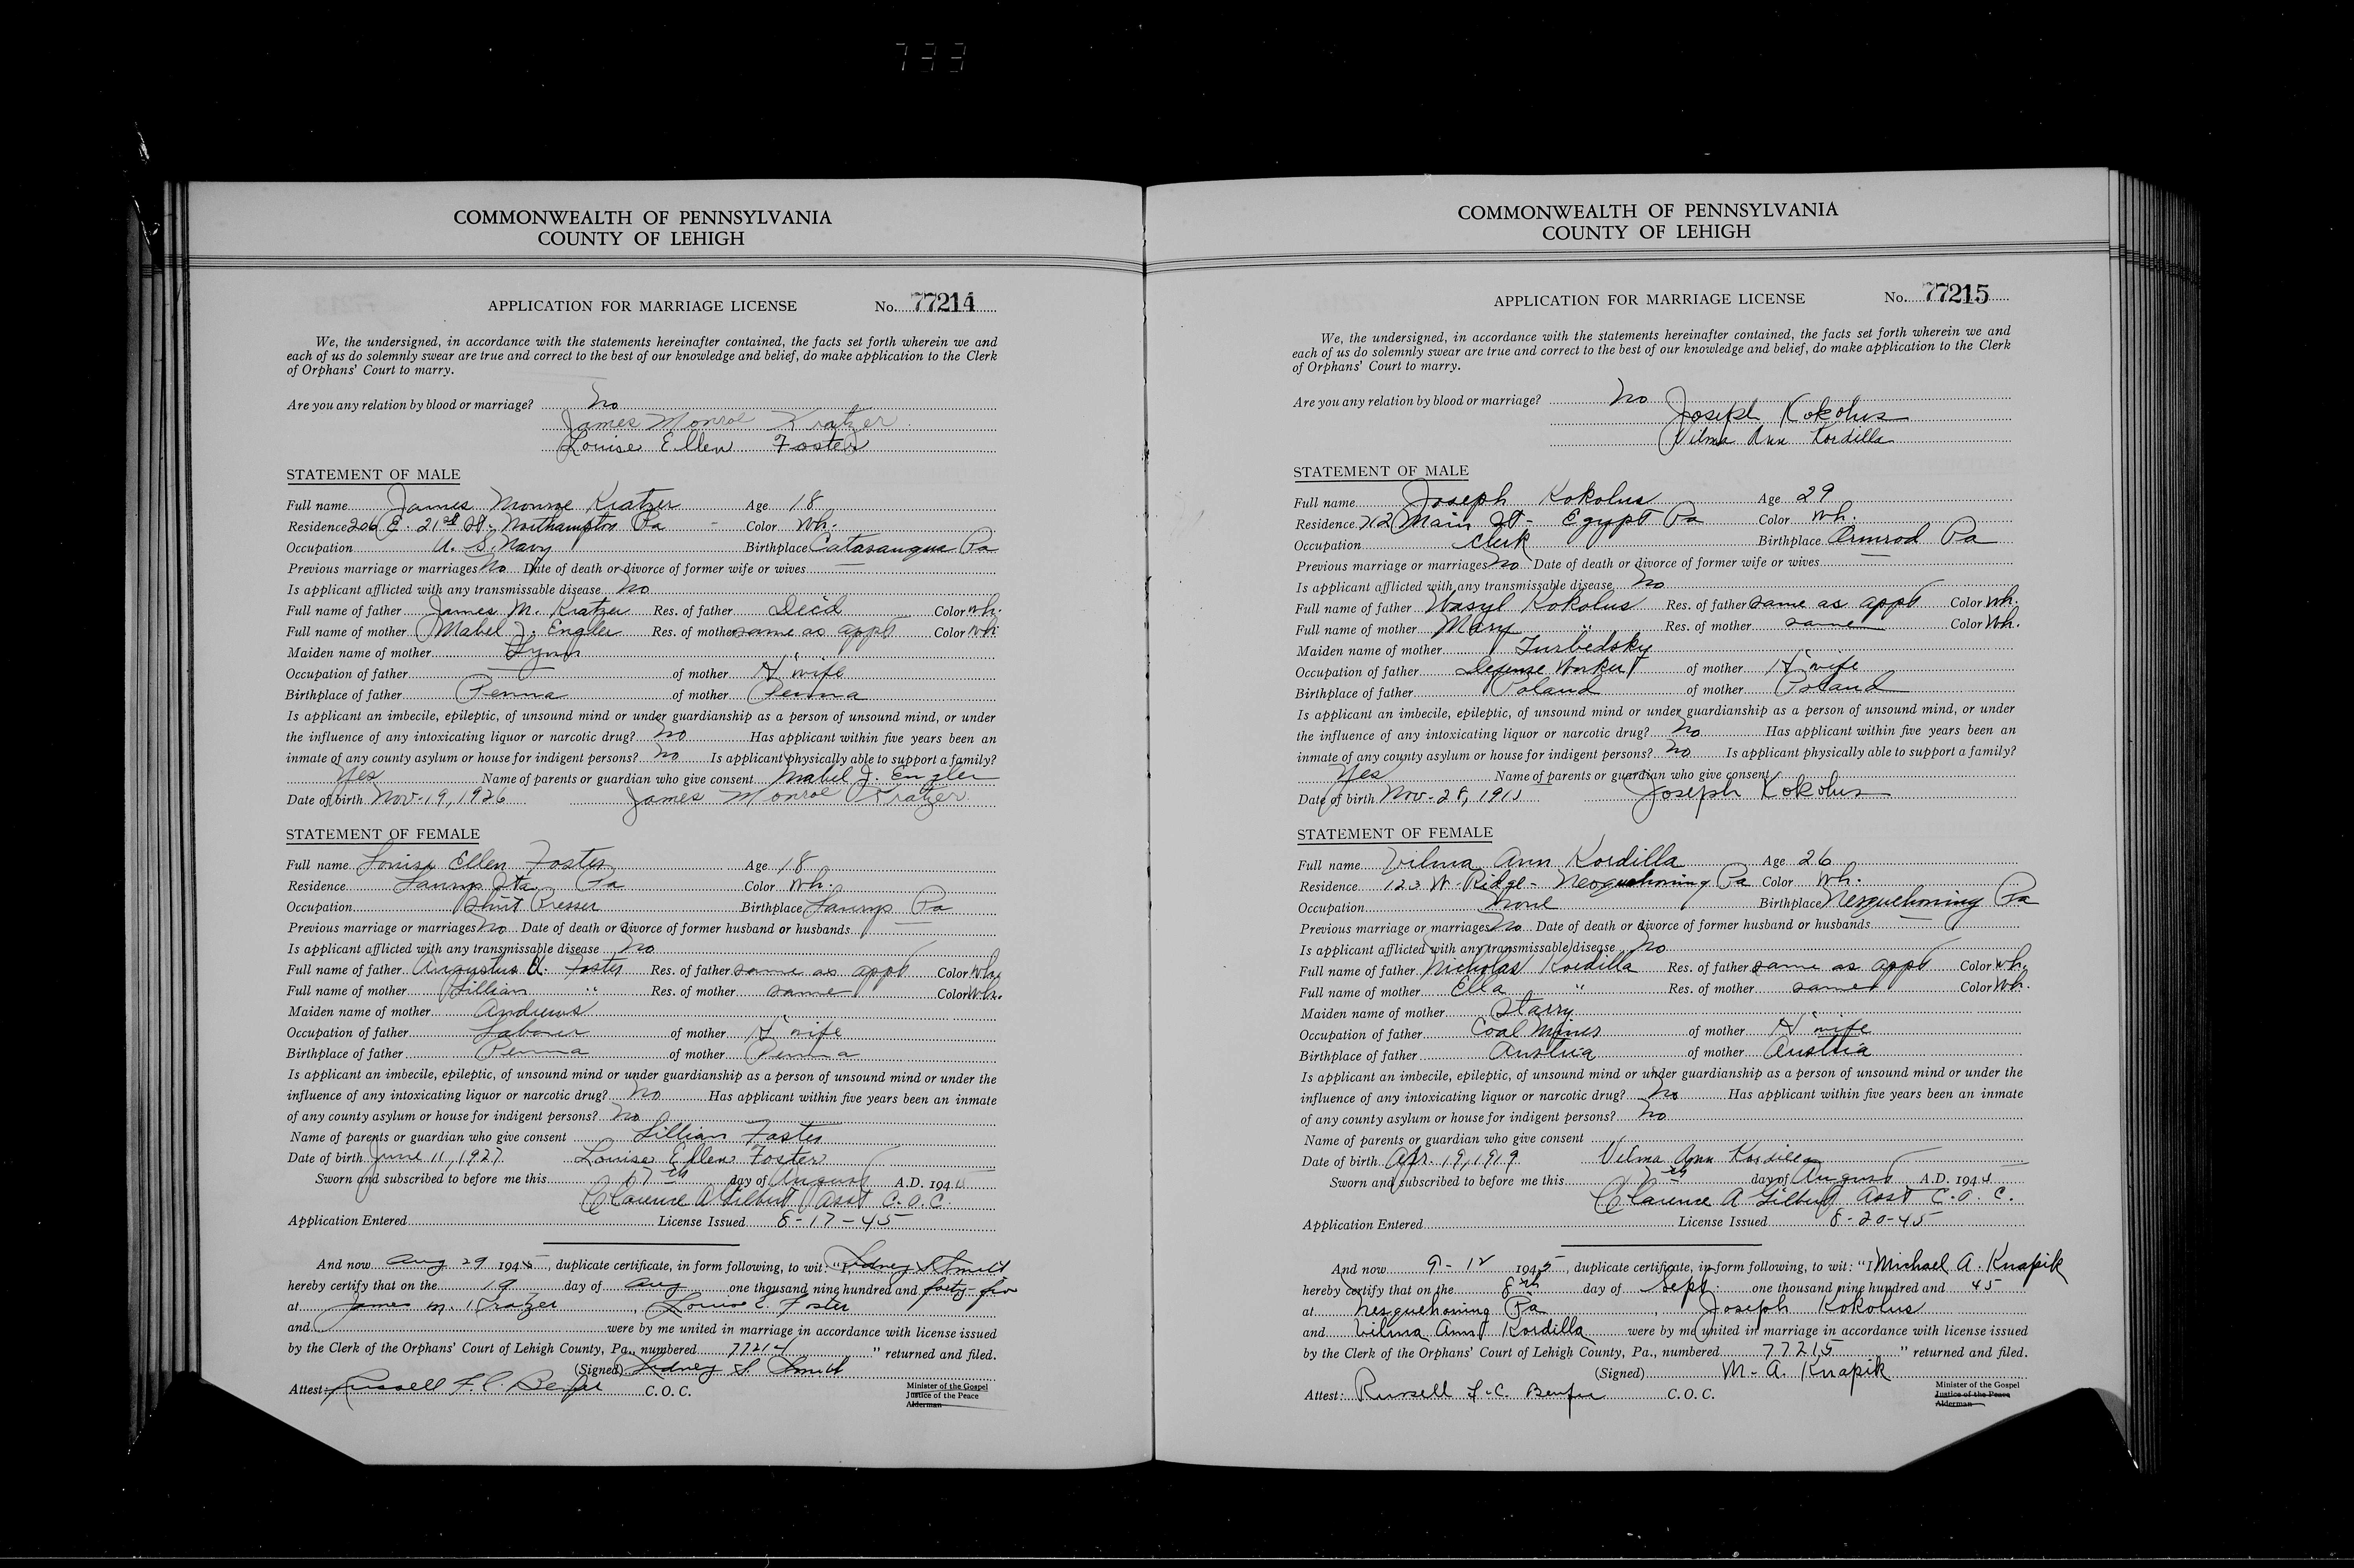 733
COMMONWEALTH OF PENNSYLVANIA
COUNTY OF LEHIGH
APPLICATION FOR MARRIAGE LICENSE No. 77214
We, the undersigned, in accordance with the statements hereinafter contained, the facts set forth wherein we and
each of us do solemnly swear are true and correct to the best of our knowledge and belief, do make application to the Clerk
of Orphans' Court to marry.
Are you any relation by blood or marriage? No
James Monroe Kratzer
Louise Ellen Foster
STATEMENT OF MALE
Full name James Monroe Kratzer Age 18
Residence 206 E. 21st St. Northampton Pa Color Wh.
Occupation U. S. Navy Birthplace Catasauqua Pa
Previous marriage or marriages No Date of death or divorce of former wife or wives —
Is applicant afflicted with any transmissable disease No
Full name of father James M. Kratzer Res. of father Dec'd Color Wh.
Full name of mother Mabel J. Engler Res. of mother same as appt Color Wh
Maiden name of mother Lynn
Occupation of father — of mother H'wife
Birthplace of father Penna of mother Penna
Is applicant an imbecile, epileptic, of unsound mind or under guardianship as a person of unsound mind, or under
the influence of any intoxicating liquor or narcotic drug? No Has applicant within five years been an
inmate of any county asylum or house for indigent persons? No Is applicant physically able to support a family?
Yes Name of parents or guardian who give consent Mabel J. Engler
Date of birth Nov-19, 1926 James Monroe Kratzer
STATEMENT OF FEMALE
Full name Louise Ellen Foster Age 18
Residence Laurys Sta. Pa Color Wh.
Occupation Shirt Presser Birthplace Laurys Pa
Previous marriage or marriages No Date of death or divorce of former husband or husbands —
Is applicant afflicted with any transmissable disease No
Full name of father Augustus Foster Res. of father same as appt Color Wh.
Full name of mother Lillian " Res. of mother same Color Wh.
Maiden name of mother Andrews
Occupation of father Laborer of mother H'wife
Birthplace of father Penna of mother Penna
Is applicant an imbecile, epileptic, of unsound mind or under guardianship as a person of unsound mind or under the
influence of any intoxicating liquor or narcotic drug? No Has applicant within five years been an inmate
of any county asylum or house for indigent persons? No
Name of parents or guardian who give consent Lillian Foster
Date of birth June 11, 1927 Louise Ellen Foster
Sworn and subscribed to before me this 17th day of August A.D. 194
Clarence A Gilbert Asst C.O.C.
Application Entered License Issued 8-17-45
And now Aug 29 1945, duplicate certificate, in form following, to wit: "I, Sidney S Smith
hereby certify that on the 19 day of Aug one thousand nine hundred and forty-five
at James M. Kratzer, Louise E. Foster
and were by me united in marriage in accordance with license issued
by the Clerk of the Orphans' Court of Lehigh County, Pa., numbered 77214 " returned and filed.
(Signed) Sidney S Smith
Attest: Russell F. C. Benfer C.O.C.
Minister of the Gospel
Justice of the Peace
Alderman
COMMONWEALTH OF PENNSYLVANIA
COUNTY OF LEHIGH
APPLICATION FOR MARRIAGE LICENSE No. 77215
We, the undersigned, in accordance with the statements hereinafter contained, the facts set forth wherein we and
each of us do solemnly swear are true and correct to the best of our knowledge and belief, do make application to the Clerk
of Orphans' Court to marry.
Are you any relation by blood or marriage? No
Joseph Kokolus
Vilma Ann Kordilla
STATEMENT OF MALE
Full name Joseph Kokolus Age 29
Residence 712 Main St - Egypt Pa Color Wh.
Occupation Clerk Birthplace Ormrod Pa
Previous marriage or marriages No Date of death or divorce of former wife or wives —
Is applicant afflicted with any transmissable disease No
Full name of father Wasyl Kokolus Res. of father same as appt Color Wh.
Full name of mother Mary " Res. of mother same Color Wh.
Maiden name of mother Turbedsky
Occupation of father Defense Worker of mother H'wife
Birthplace of father Poland of mother Poland
Is applicant an imbecile, epileptic, of unsound mind or under guardianship as a person of unsound mind, or under
the influence of any intoxicating liquor or narcotic drug? No Has applicant within five years been an
inmate of any county asylum or house for indigent persons? No Is applicant physically able to support a family?
Yes Name of parents or guardian who give consent
Date of birth Nov-28, 1915 Joseph Kokolus
STATEMENT OF FEMALE
Full name Vilma Ann Kordilla Age 26
Residence 123 W-Ridge- Nesquehoning Pa Color Wh.
Occupation None Birthplace Nesquehoning Pa
Previous marriage or marriages No Date of death or divorce of former husband or husbands —
Is applicant afflicted with any transmissable disease No
Full name of father Nicholas Kordilla Res. of father same as appt Color Wh.
Full name of mother Ella " Res. of mother same Color Wh.
Maiden name of mother Starry
Occupation of father Coal Miner of mother H'wife
Birthplace of father Austria of mother Austria
Is applicant an imbecile, epileptic, of unsound mind or under guardianship as a person of unsound mind or under the
influence of any intoxicating liquor or narcotic drug? No Has applicant within five years been an inmate
of any county asylum or house for indigent persons? No
Name of parents or guardian who give consent
Date of birth Apr. 19, 1919 Vilma Ann Kordilla
Sworn and subscribed to before me this day of August A.D. 1945
Clarence A Gilbert Asst C.O.C.
Application Entered License Issued 8-20-45
And now 9-12 1945, duplicate certificate, in form following, to wit: "I Michael A. Knapik
hereby certify that on the 8th day of Sept. one thousand nine hundred and 45
at Nesquehoning Pa, Joseph Kokolus
and Vilma Ann Kordilla were by me united in marriage in accordance with license issued
by the Clerk of the Orphans' Court of Lehigh County, Pa., numbered 77215 " returned and filed.
(Signed) M. A. Knapik
Attest: Russell F. C. Benfer C.O.C.
Minister of the Gospel
Justice of the Peace
Alderman